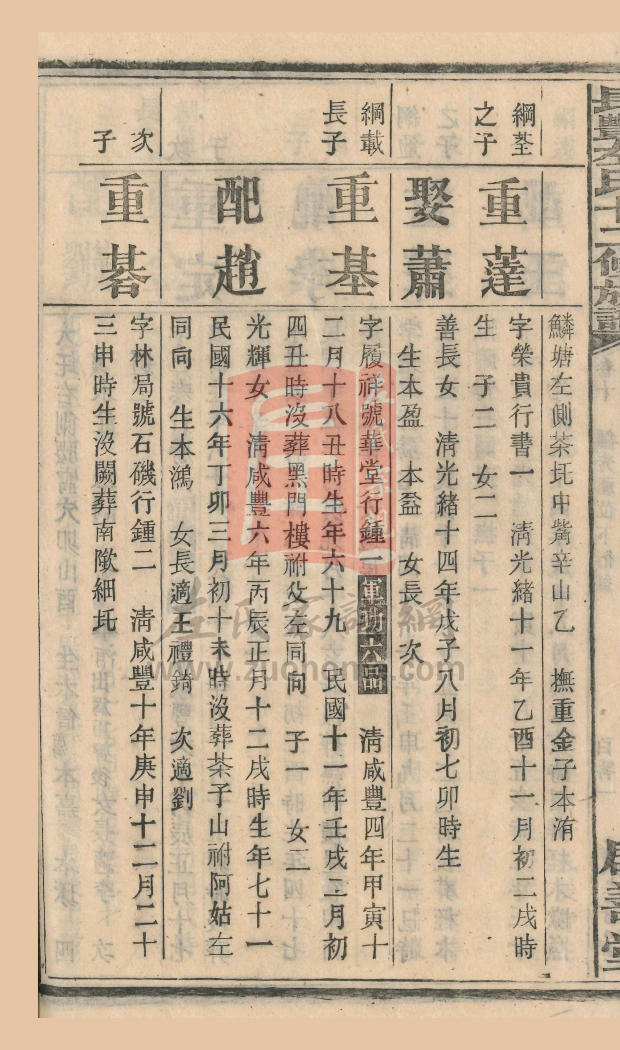 鱗塘左側茶坵申觜辛山乙　撫重金子本洧
綱荃
之子
重蓬
字榮貴行書一　清光緒十一年乙酉十一月初二戌時
生　子二　女二
娶蕭
善長女　清光緒十四年戊子八月初七卯時生
生本盈　本益　女長　次
綱載
長子
重基
字履祥號華堂行鍾一軍功六品　清咸豐四年甲寅十
二月十八丑時生年六十九　民國十一年壬戌二月初
四丑時沒葬黑門樓祔父左同向　子一　女二
配趙
光輝女　清咸豐六年丙辰正月十二戌時生年七十一
民國十六年丁卯三月初十未時沒葬茶子山祔阿姑左
同向　生本鴻　女長適王禮錡　次適劉
次
子
重碁
字林局號石磯行鍾二　清咸豐十年庚申十二月二十
三申時生沒闕葬南歞細坵
左氏家譜網
www.zuohome.com